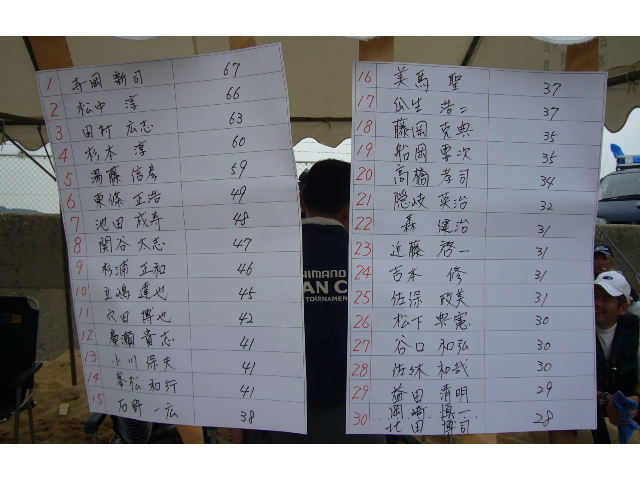 1 寺岡 新司 67
2 松中 淳 66
3 田村 広志 63
4 杉本 淳 60
5 湯藤 信彦 59
6 東條 正浩 49
7 池田 成寿 48
8 関谷 太志 47
9 杉浦 正和 46
10 立嶋 達也 45
11 穴田 博也 42
12 廣瀬 貴志 41
13 小川 保夫 41
14 峯松 和行 41
15 石野 一広 38
16 美馬 聖 37
17 瓜生 浩二 37
18 藤岡 克典 35
19 船岡 要次 35
20 高橋 孝司 34
21 隠岐 英治 32
22 森 健治 31
23 近藤 啓一 31
24 吉本 修 31
25 佐保 政美 31
26 松下 典憲 30
27 谷口 和弘 30
28 佐々木 和哉 30
29 益田 清明 29
30 岡崎 慎一
北田 博司 28
SHIMANO
AN C
TOURNAMENT